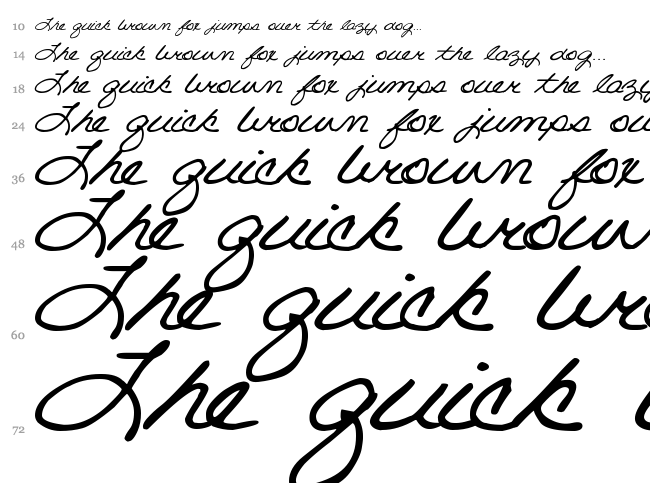 10 The quick brown fox jumps over the lazy dog...
14 The quick brown fox jumps over the lazy dog...
18 The quick brown fox jumps over the lazy
24 The quick brown fox jumps ou
36 The quick brown fox
48 The quick brown
60 The quick br
72 The quick